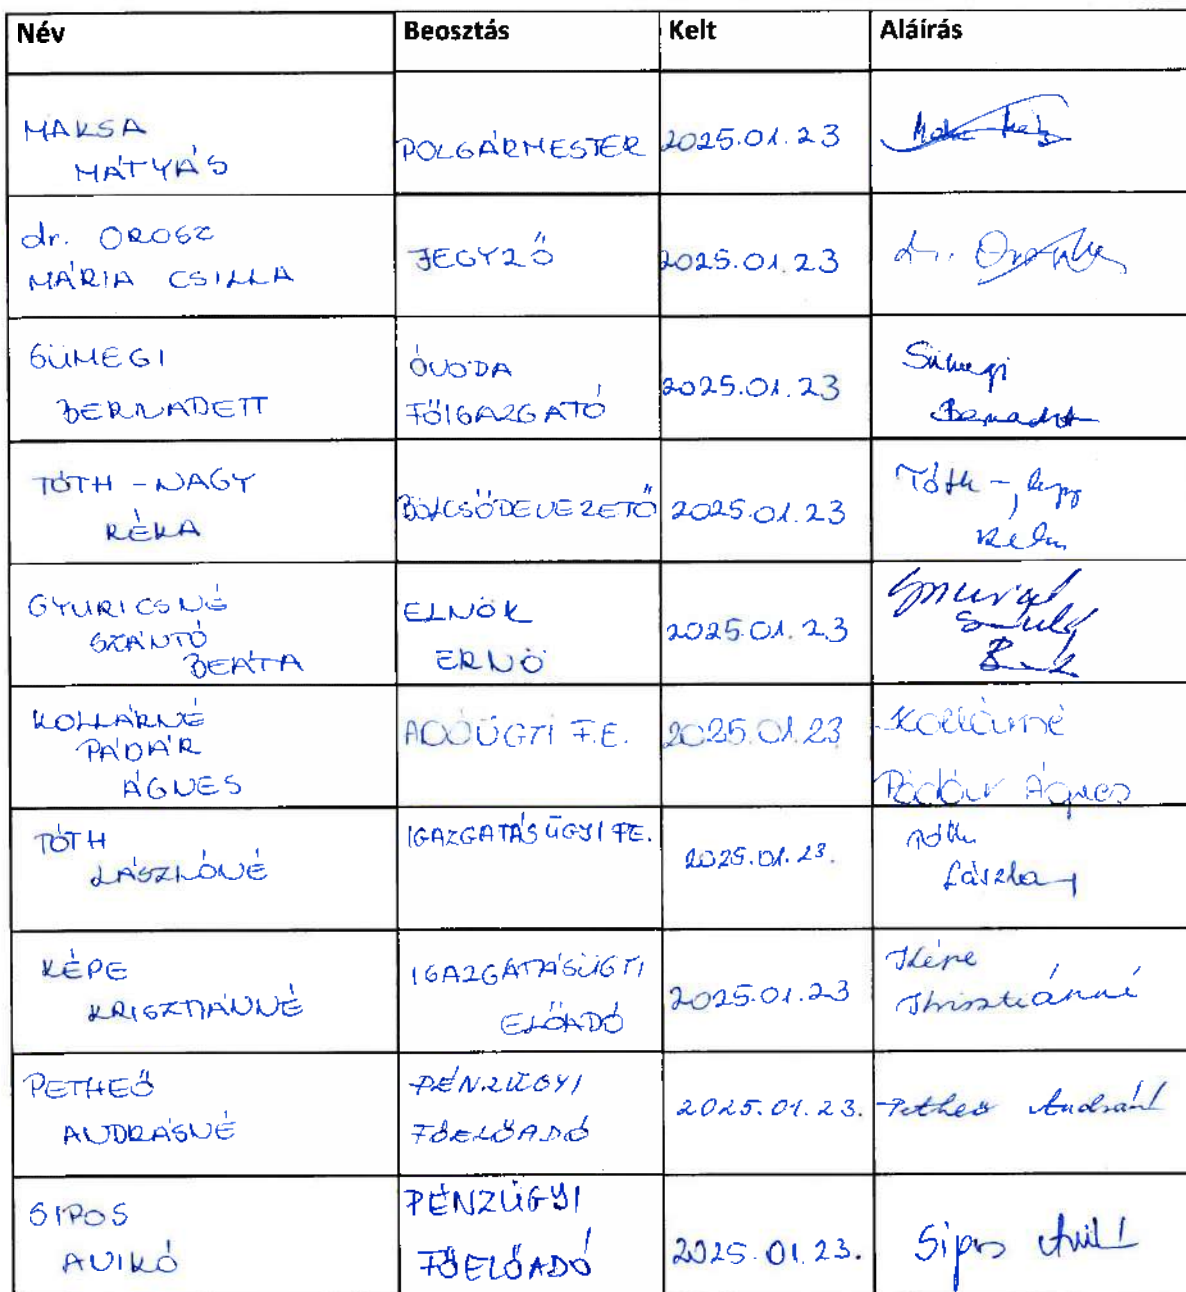 Név Beosztás Kelt Aláírás
MAKSA
MÁTYÁS
POLGÁRMESTER
2025.01.23
dr. OROSZ
MÁRIA CSILLA
JEGYZŐ
2025.01.23
dr.
SÜMEGI
BERNADETT
ÓVODA
FŐIGAZGATÓ
2025.01.23
Sümegi
Bernadett
TÓTH - NAGY
RÉKA
BÖLCSŐDEVEZETŐ
2025.01.23
Tóth -
Réka
GYURICSNÉ
SZÁNTÓ
BEÁTA
ELNÖK
ERNÖ
2025.01.23
KOLLÁRNÉ
PÁDÁR
ÁGNES
ADÓÜGYI F.E.
2025.01.23
Kollárné
Pádár Ágnes
TÓTH
LÁSZLÓNÉ
IGAZGATÁSÜGYI FE.
2025.01.23.
Tóth
KÉPE
KRISZTIÁNNÉ
IGAZGATÁSÜGYI
ELŐADÓ
2025.01.23
Képe
Krisztiánné
PETHEŐ
ANDRÁSNÉ
PÉNZÜGYI
FŐELŐADÓ
2025.01.23.
Petheő Andrásné
SIPOS
ANIKÓ
PÉNZÜGYI
FŐELŐADÓ
2025.01.23.
Sipos Anikó